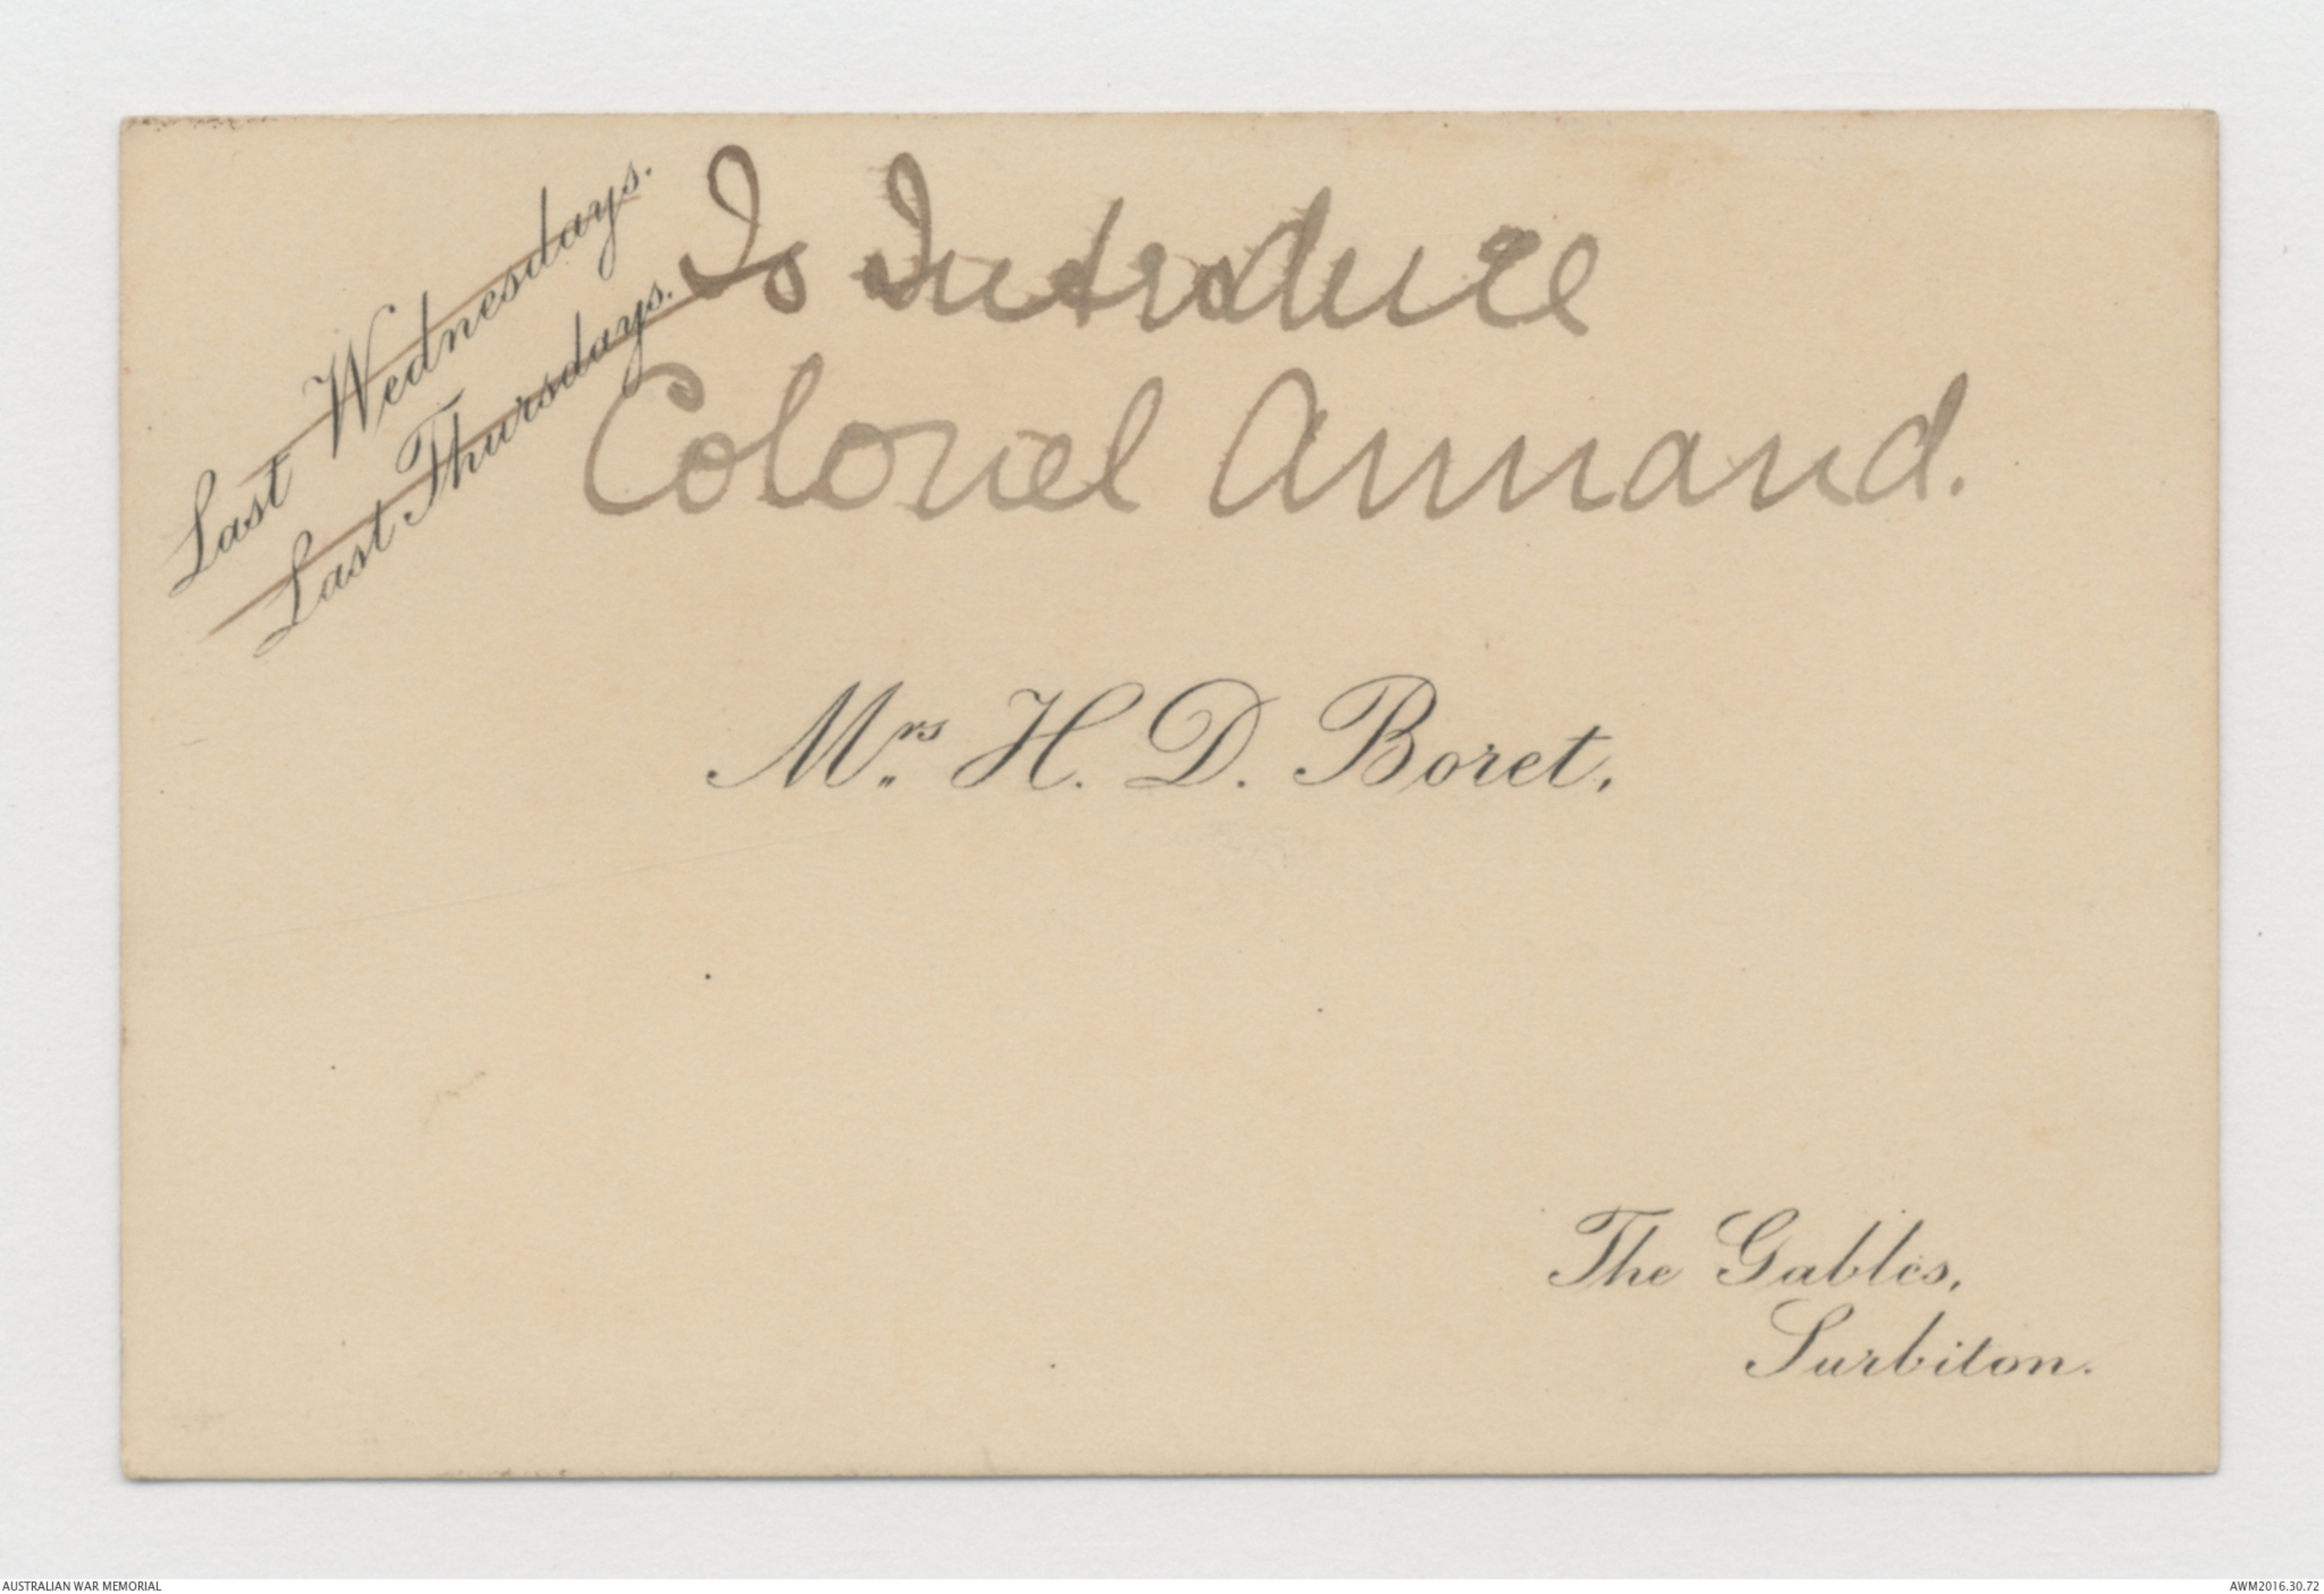 Last Wednesdays.
Last Thursdays.
To Introduce
Colonel Annand.
Mrs H. D. Boret,
The Gables,
Surbiton.
AUSTRALIAN WAR MEMORIAL
AWM2016.30.72